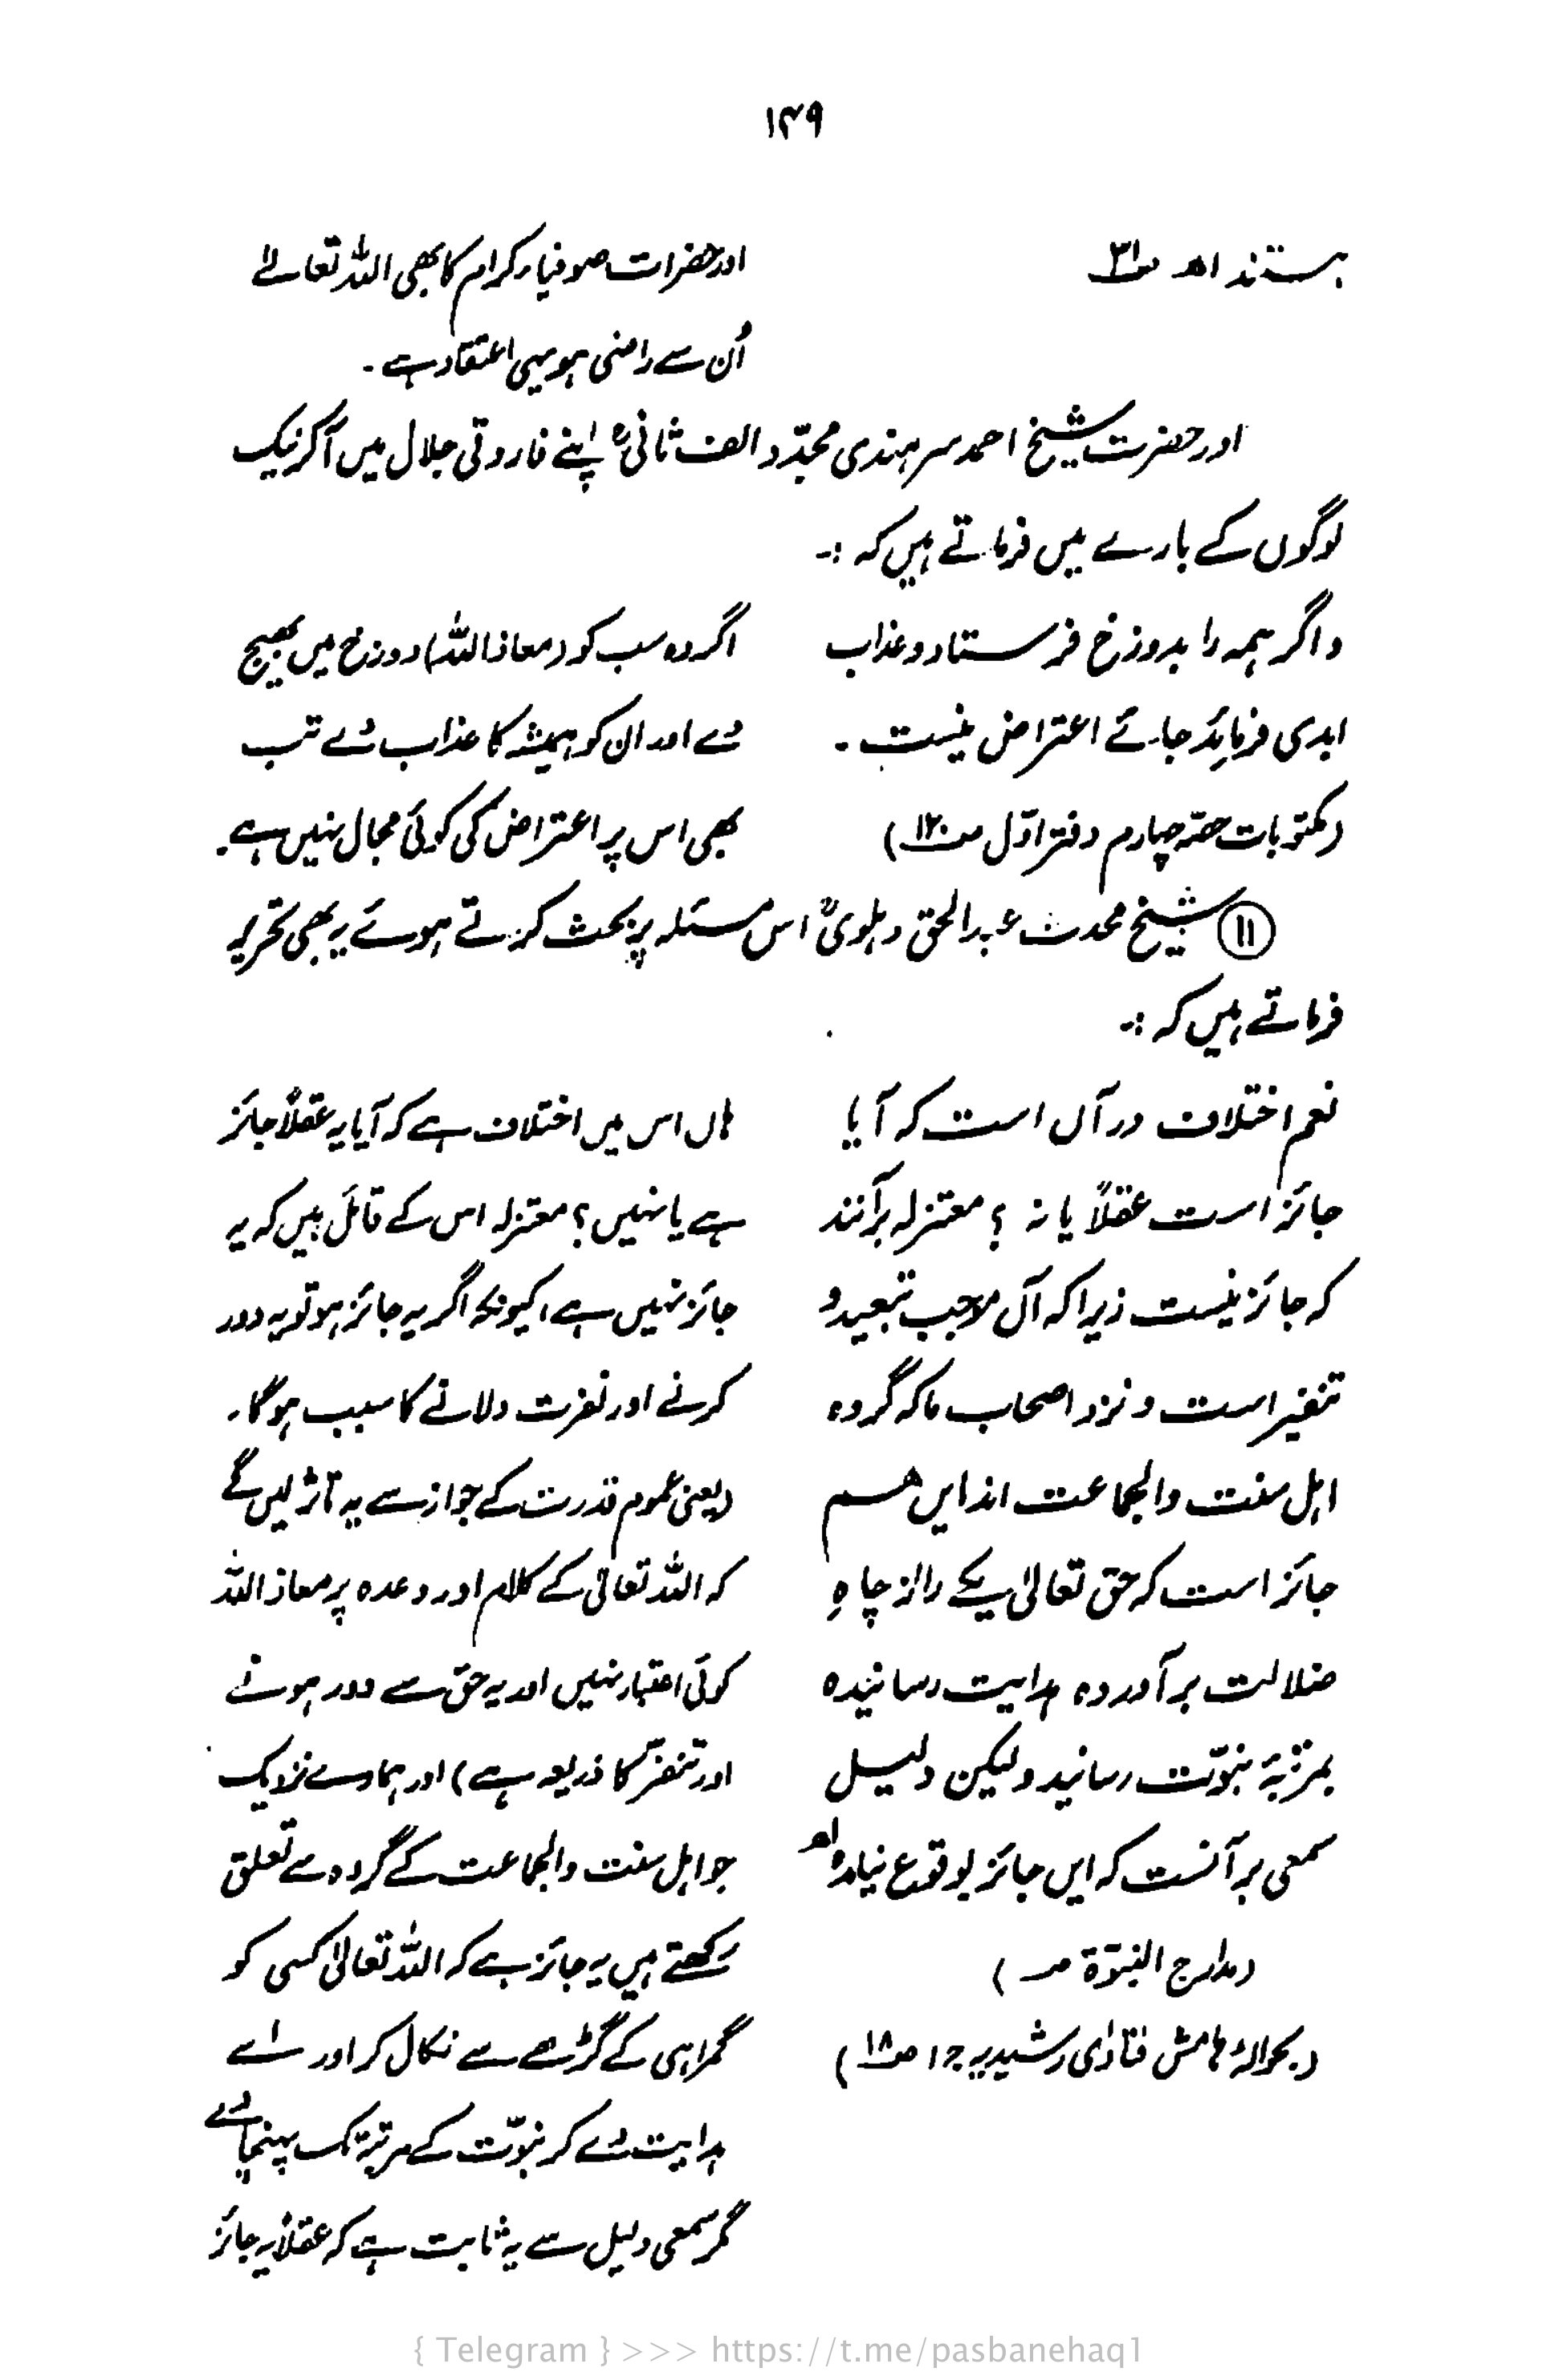 ۱۴۹
ہستند اھ ص۳۱
اور حضرات صوفیاء کرام کا بھی اللہ تعالےٰ
اُن سے راضی ہو یہی اعتقاد ہے ۔
اور حضرت شیخ احمد سرہندی مجدّد الف ثانیؒ اپنے فاروقی جلال میں آکر نیک
لوگوں کے بارے میں فرماتے ہیں کہ :۔
و اگر ہمہ را بدوزخ فرستاد و عذاب
ابدی فرمائد جائے اعتراض نیست ۔
(مکتوبات حصّہ چہارم دفتر اوّل ص۱۲۰)
اگر وہ سب کو (معاذ اللہ) دوزخ میں بھیج
دے اور ان کو ہمیشہ کا عذاب دے تب
بھی اس پر اعتراض کی کوئی مجال نہیں ہے۔
⑪ شیخ محدث عبدالحق دہلویؒ اس مسئلہ پر بحث کرتے ہوئے یہ بھی تحریر
فرماتے ہیں کہ :۔
نعم اختلاف در آں است کہ آیا
جائز است عقلاً یا نہ ؟ معتزلہ برآنند
کہ جائز نیست زیرا کہ آں موجب تبعید و
تنفیر است و نزد اصحاب ما کہ گروہ
اہل سنت والجماعت اند ایں ہم
جائز است کہ حق تعالیٰ یکے را از چاہِ
ضلالت برآوردہ ہدایت رسانیدہ
بمرتبۂ نبوّت رساند و لیکن دلیل
سمعی برآنست کہ ایں جائز بوقوع نیامدہ اھ
(مدارج النبوّۃ ص )
(بحوالہ ہامش فتاوٰی رشیدیہ ج۱ ص۱۸)
ہاں اس میں اختلاف ہے کہ آیا یہ عقلاً جائز
ہے یا نہیں ؟ معتزلہ اس کے قائل ہیں کہ یہ
جائز نہیں ہے، کیونکہ اگر یہ جائز ہو تو یہ دور
کرنے اور نفرت دلانے کا سبب ہوگا۔
(یعنی عموم قدرت کے جواز سے یہ تاڑ لیں گے
کہ اللہ تعالیٰ کے کلام اور وعدہ پر معاذ اللہ
کوئی اعتبار نہیں اور یہ حق سے دور ہونے
اور تنفّر کا ذریعہ ہے) اور ہمارے نزدیک
جو اہل سنت والجماعت کے گروہ سے تعلق
رکھتے ہیں یہ جائز ہے کہ اللہ تعالیٰ کسی کو
گمراہی کے گڑھے سے نکال کر اور اسے
ہدایت دے کر نبوّت کے مرتبہ تک پہنچا دے
مگر سمعی دلیل سے یہ ثابت ہے کہ عقلاً یہ جائز
{ Telegram } >>> https://t.me/pasbanehaq1